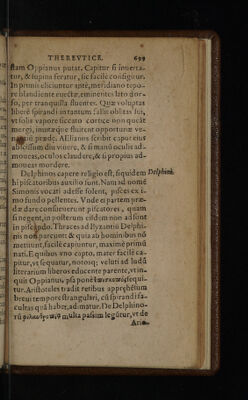 THEREVTICE. 699
stam Oppianus putat. Capitur si inuerta-
tur, & supina feratur, sic facile configitur.
In primis eliciuntur æstu, meridiano tepo-
re blandiente euectæ, eminentes toto dorso,
per tranquilla fluentes. Quæ voluptas
liberè spirandi in tantum fallit oblitas sui,
vt solis vapore siccato cortice non queant
mergi, inuitæque fluitent opportunæ ve-
nantium prædæ. AElianus scribit capur eius
abscissum diu viuere, & si manū oculis ad-
moueas, oculos claudere, & si propius ad-
moueas mordere.
Delphinos capere religio est, siquidem
hi piscatoribus auxilio sunt. Nam ad nomē
Simonis vocati adesse solent, pisces ex i-
mo fundo pellentes. Vnde ei partem præ-
dæ dare consueuerunt piscatores, quam
si negent, in posterum eisdem non adsunt
in piscando. Thraces ad Byzantiū Delphi-
nis non parcunt: & quia ab hominibus nō
metuunt, facile capiuntur, maximè primū
nati. E quibus vno capto, mater facile ca-
pitur, vt sequatur, notosq; veluti ad ludū
literarium liberos educente parente, vt in-
quit Oppianus, ipsa ponè
tur. Aristoteles tradit retibus apprehēsum
breui tempore strangulari, cū spirandi fa-
cultas quā habet, adimatur. De Delphino-
rū multa passim legūtur, vt de
Ario-
Delphinū.